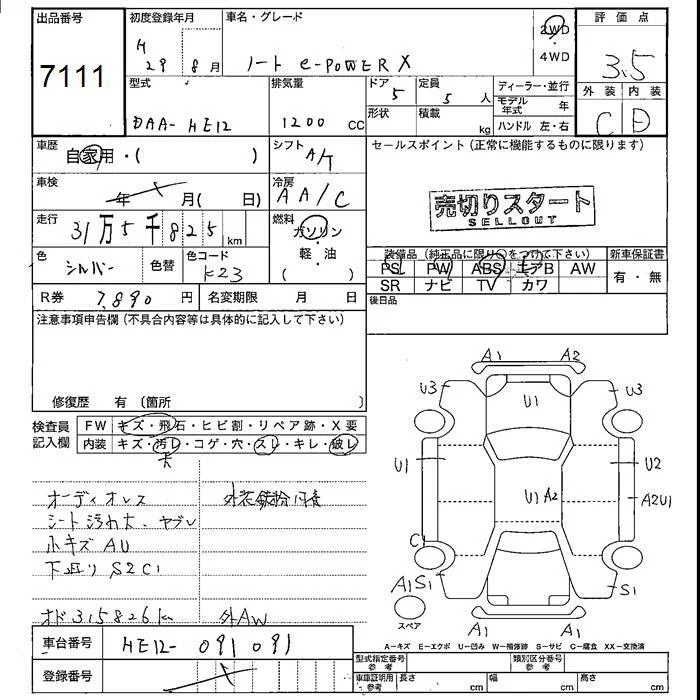 出品番号
7111
初度登録年月
H 29年 8月
車名・グレード
ノート e-POWER X
2WD
4WD
評価点
3.5
外装 内装
C D
型式
DAA- HE12
排気量
1200 CC
ドア
5
定員
5 人
形状
積載
kg
ディーラー・並行
モデル年式 年
ハンドル 左・右
車歴
自家用・( )
シフト
A/T
セールスポイント(正常に機能するものに限ります)
車検
年 月( 日)
冷房
AA/C
売切りスタート
SELLOUT
走行
31万5千825 km
燃料
ガソリン
・
軽・油
( )
色
シルバー
色替
色コード
K23
装備品(純正品に限り○をつけて下さい)
新車保証書
PS PW ABS エアB AW
有・無
SR ナビ TV カワ
R券
7,890 円
名変期限 月 日
後日品
注意事項申告欄(不具合内容等は具体的に記入して下さい)
修復歴 有 (箇所 )
検査員記入欄
FW キズ・飛石・ヒビ割・リペア跡・X要
内装 キズ・汚レ・コゲ・穴・スレ・キレ・破レ
大
オーディオレス
外装鉄粉付着
シート汚れ大、ヤブレ
小キズ AU
下廻り S2C1
オド315826km
外AW
車台番号
HE12- 091091
登録番号
A1 A2
U3 U3
U1
U1 U2
U1 A2
A2U1
C1
A1 S1
S1
スペア
A1 A1
A-キズ E-エクボ U-凹み W-補修跡 S-サビ C-腐食 XX-交換済
型式指定番号
参考
類別区分番号
参考
車庫証明用
参考
長さ cm
幅 cm
高さ cm